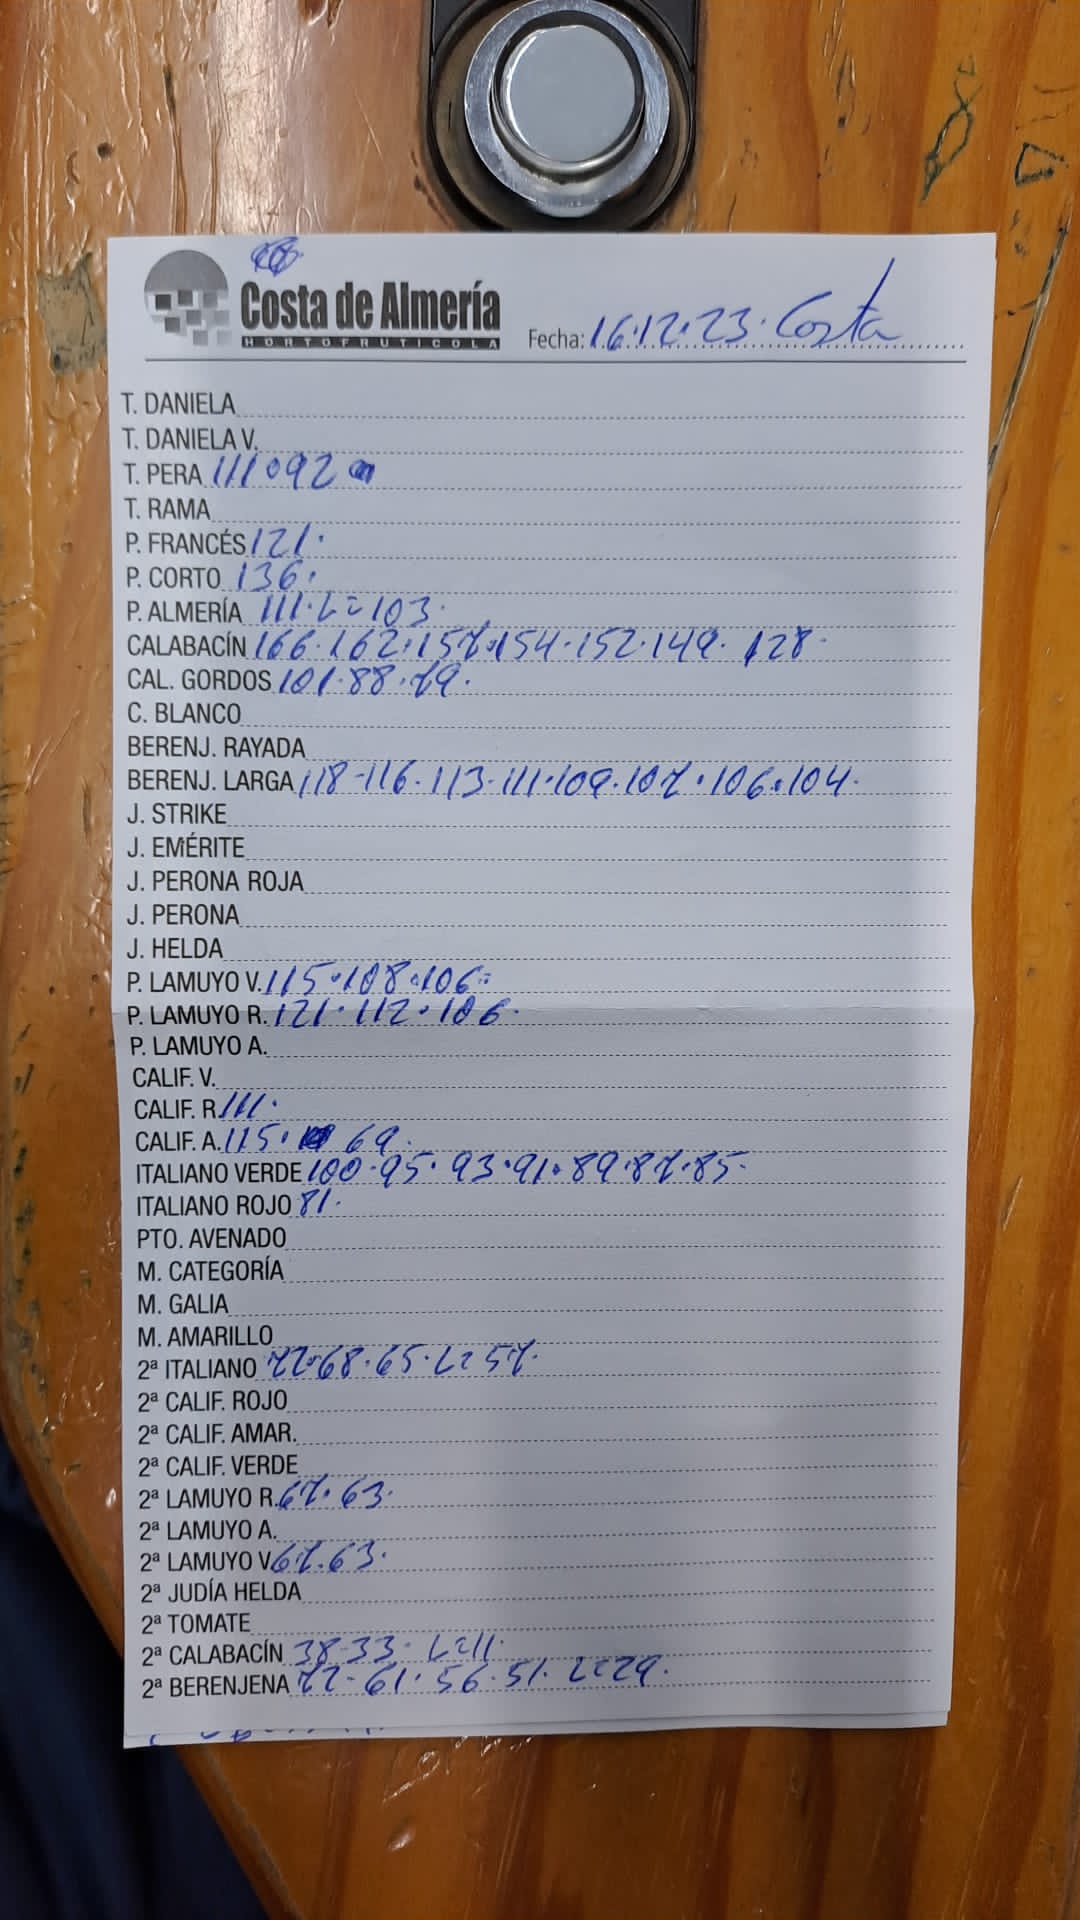 Costa de Almería
HORTOFRUTICOLA
Fecha: 16.12.23. Costa
T. DANIELA
T. DANIELA V.
T. PERA 111.92
T. RAMA
P. FRANCÉS 121.
P. CORTO 136.
P. ALMERÍA 111. L=103.
CALABACÍN 166.162.157.154.152.149. 128.
CAL. GORDOS 101.88.79.
C. BLANCO
BERENJ. RAYADA
BERENJ. LARGA 118-116.113.111.109.107.106.104.
J. STRIKE
J. EMÉRITE
J. PERONA ROJA
J. PERONA
J. HELDA
P. LAMUYO V. 115.108.106.
P. LAMUYO R. 121.112.106.
P. LAMUYO A.
CALIF. V.
CALIF. R. 111.
CALIF. A. 115. 69.
ITALIANO VERDE 100.95.93.91.89.87.85.
ITALIANO ROJO 81.
PTO. AVENADO
M. CATEGORÍA
M. GALIA
M. AMARILLO
2ª ITALIANO 72.68.65. L=57.
2ª CALIF. ROJO
2ª CALIF. AMAR.
2ª CALIF. VERDE
2ª LAMUYO R. 67.63.
2ª LAMUYO A.
2ª LAMUYO V. 67.63.
2ª JUDÍA HELDA
2ª TOMATE
2ª CALABACÍN 38-33. L=11.
2ª BERENJENA 72-61.56.51. L=29.